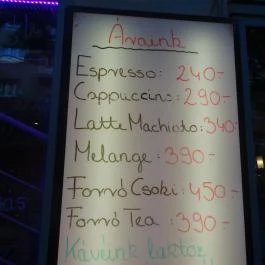 Áraink
Espresso: 240.-
Cappuccino: 290.-
Latte Machiato: 340.-
Melange: 390.-
Forró Csoki: 450.-
Forró Tea: 390.-
Kávéink laktóz